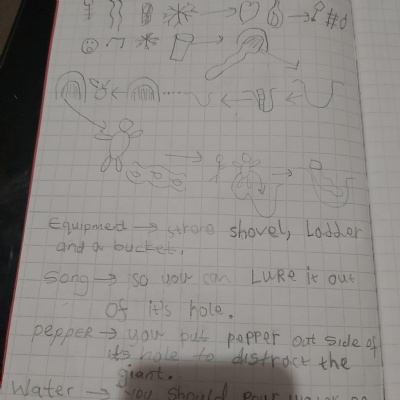 #6
Equipmend → strong shovel, Ladder
and a bucket.
Song → so you can LURE it out
of it's hole.
pepper → you put pepper out side of
its hole to distract the
giant.
Water → you should pour water